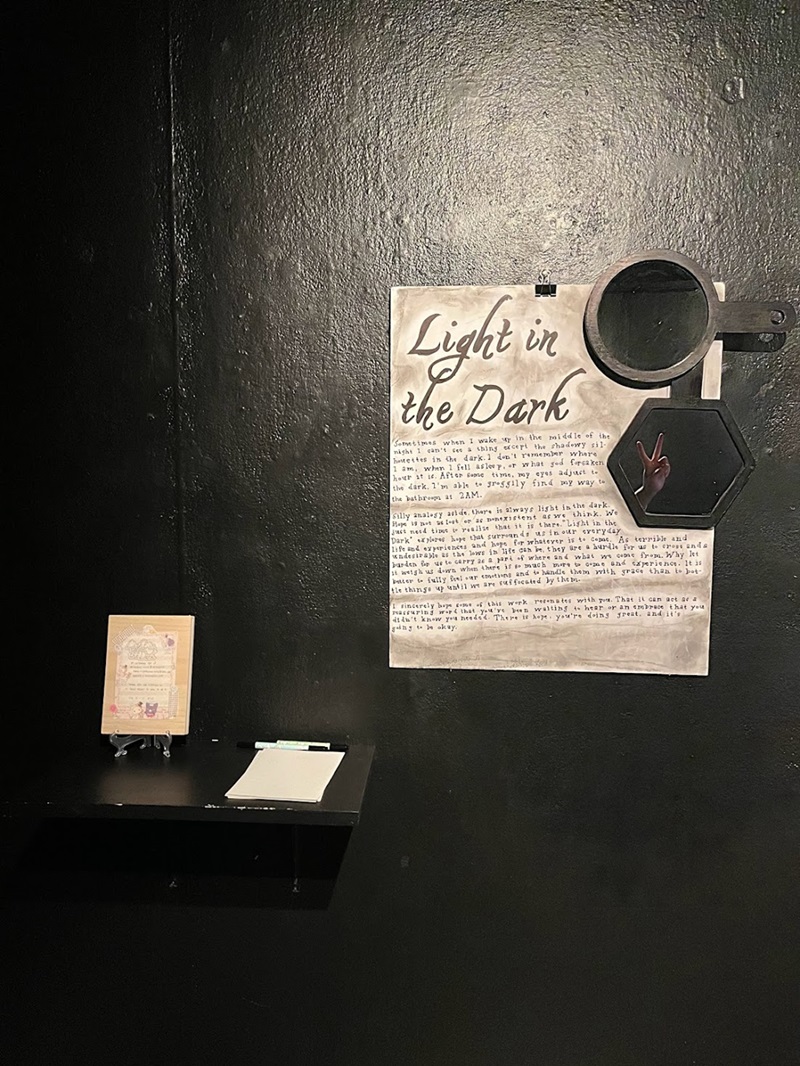 Light in
the Dark
Sometimes when I wake up in the middle of the
night I can't see a thing except the shadowy sil-
houettes in the dark. I don't remember where
I am, when I fell asleep, or what god forsaken
hour it is. After some time, my eyes adjust to
the dark. I'm able to groggily find my way to
the bathroom at 2AM.
Silly analogy aside, there is always light in the dark.
Hope is not as lost or as nonexistent as we think. We
just need time to realize that it is there. "Light in the
Dark" explores hope that surrounds us in our everyday
life and experiences and hope for whatever is to come. As terrible and
undesirable as the lows in life can be, they are a hurdle for us to cross and a
burden for us to carry as a part of where and what we come from. Why let
it weigh us down when there is so much more to come and experience. It is
better to fully feel our emotions and to handle them with grace than to bot-
tle things up until we are suffocated by them.
I sincerely hope some of this work resonates with you. That it can act as a
reassuring word that you've been waiting to hear or an embrace that you
didn't know you needed. There is hope, you're doing great, and it's
going to be okay.